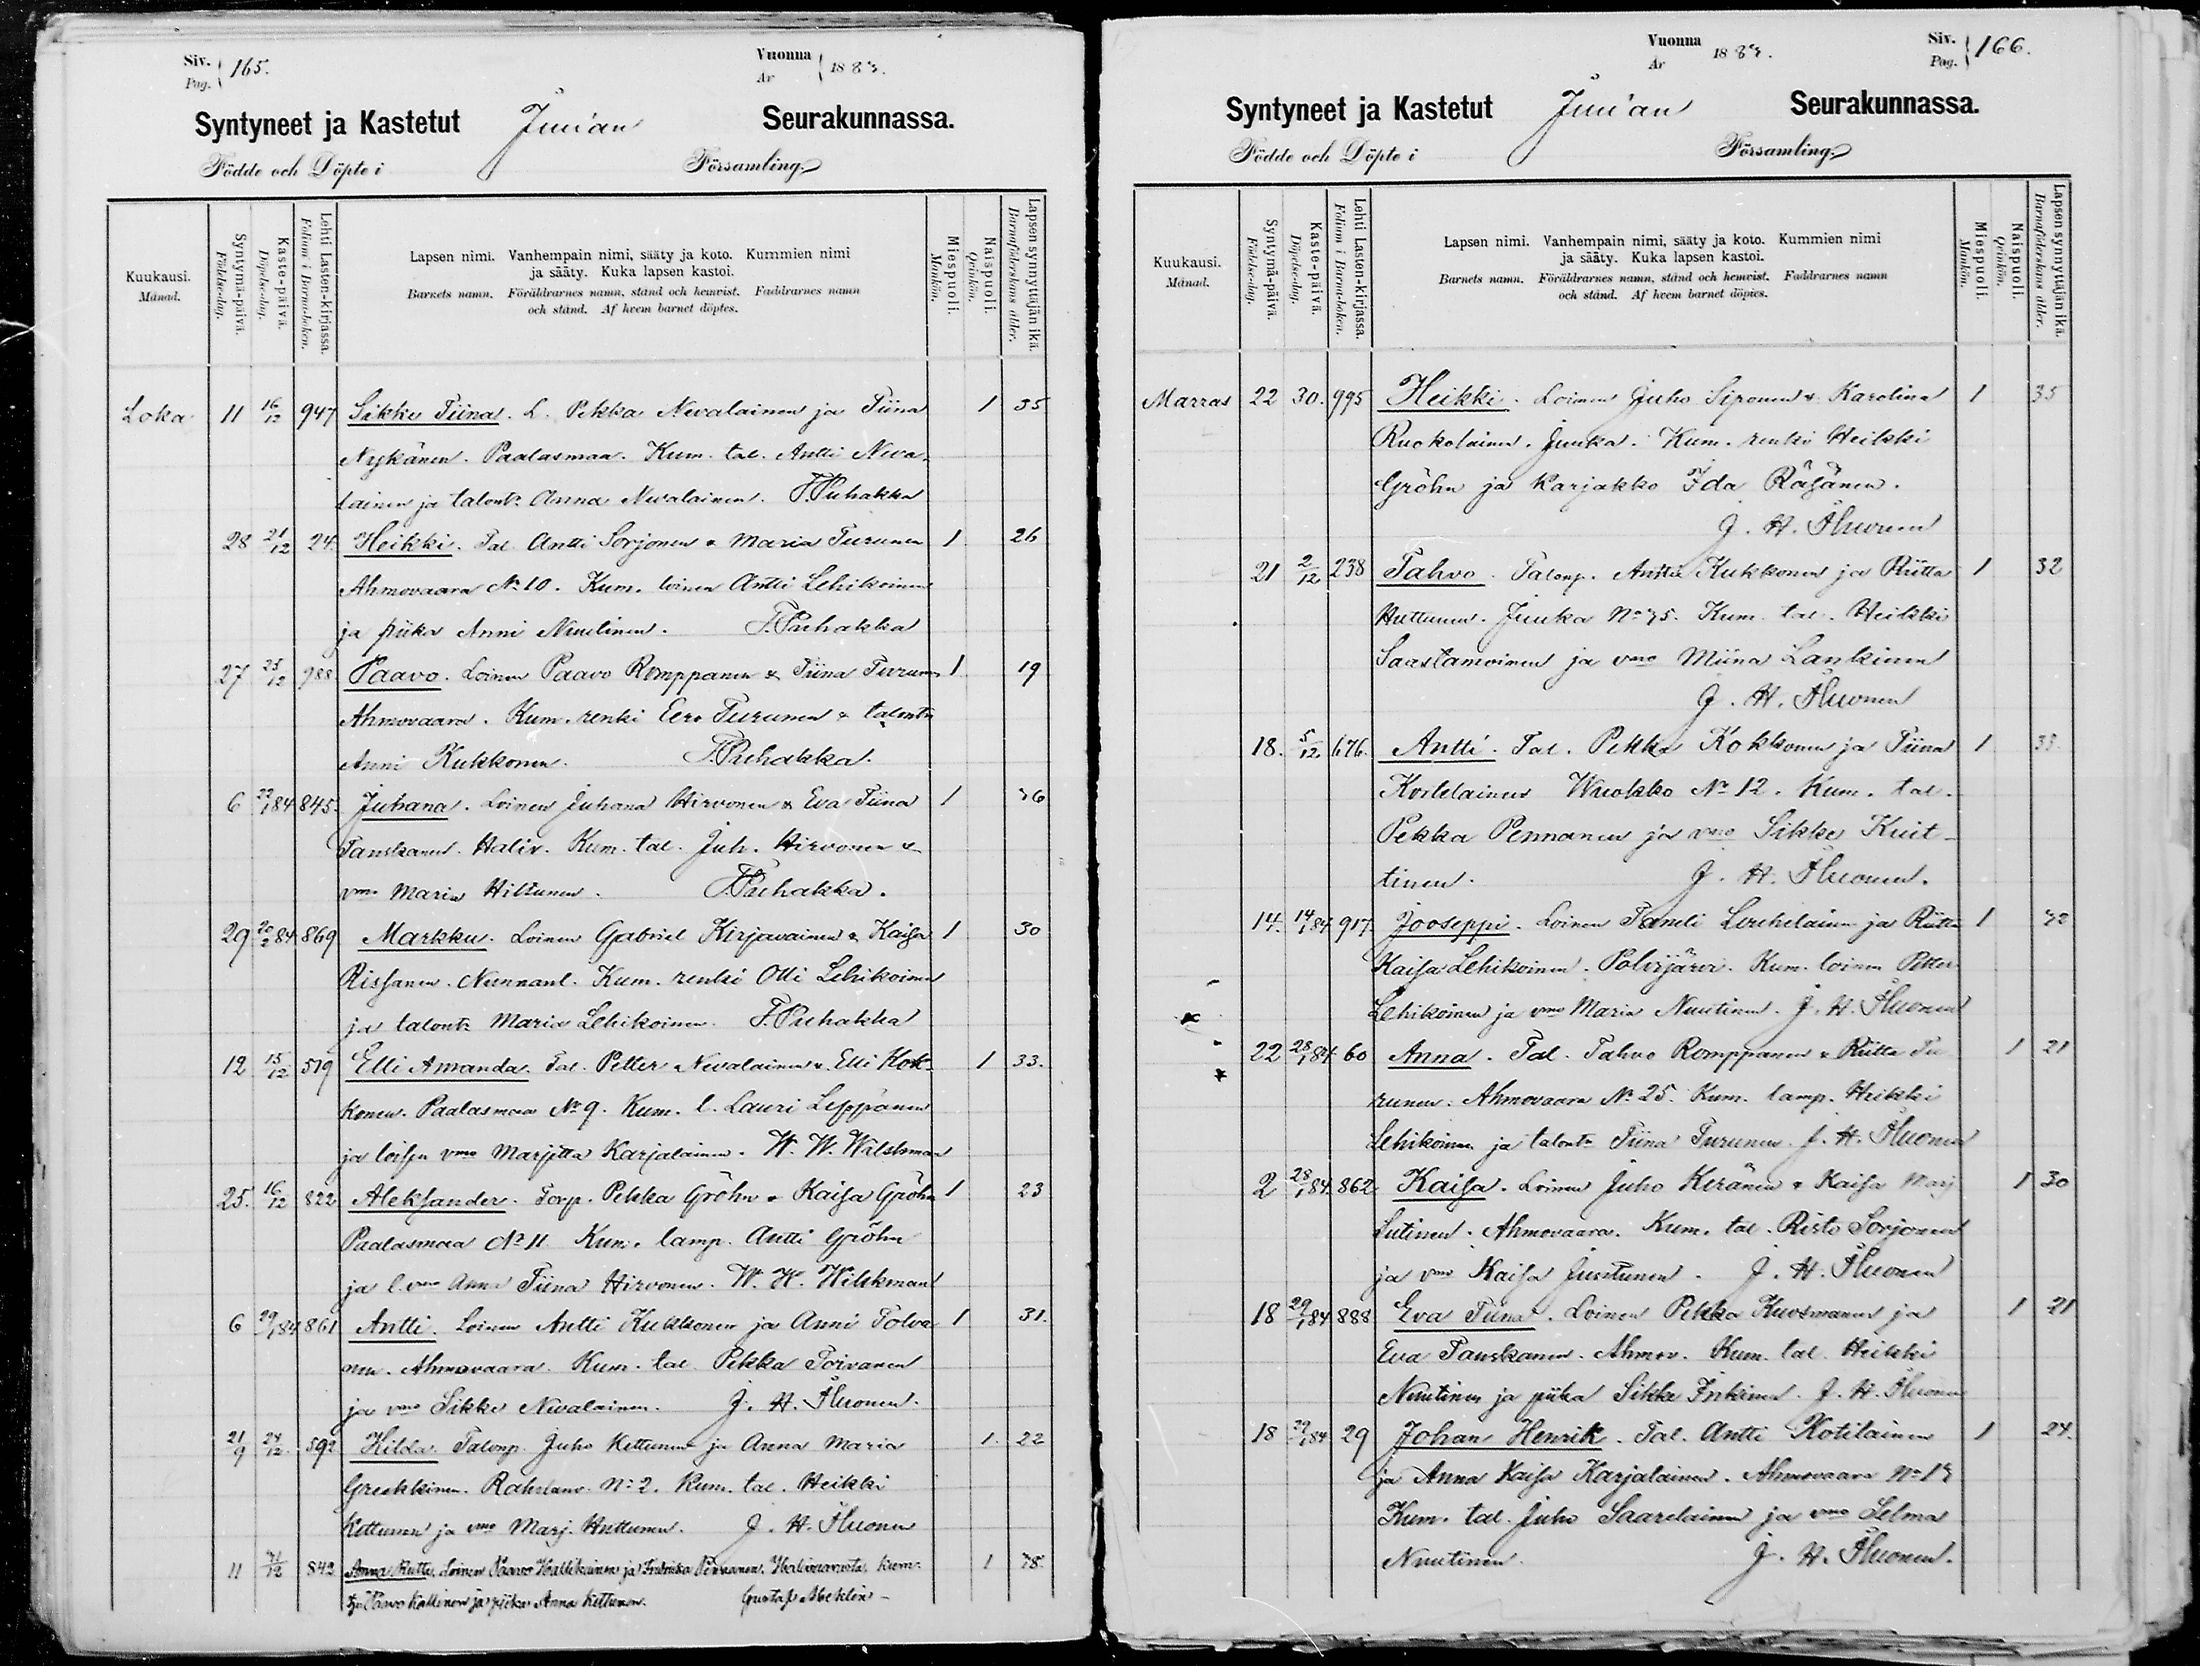 Siv. 165.
Pag.
Vuonna 1883.
Ar
Syntyneet ja Kastetut Juuan Seurakunnassa.
Födde och Döpte i Församling.
Kuukausi.
Månad.
Syntymä-päivä.
Födelse-dag.
Kaste-päivä.
Döpelse-dag.
Lehti Lasten-kirjassa.
Folium i Barna-boken.
Lapsen nimi. Vanhempain nimi, sääty ja koto. Kummien nimi
ja sääty. Kuka lapsen kastoi.
Barnets namn. Föräldrarnes namn, stånd och hemvist. Faddrarnes namn
och stånd. Af hvem barnet döptes.
Miespuoli.
Mankön.
Naispuoli.
Qvinkön.
Lapsen synnyttäjän ikä.
Barnaföderskans ålder.
Loka 11 16/12 947 Sikke Tiina. L. Pekka Nevalainen ja Tiina 1 35
Nykänen. Paalasmaa. Kum. tal. Antti Neva-
lainen ja talont. Anna Nevalainen. F. Puhakka
28 21/12 24 Heikki. Tal. Antti Sorjonen & Maria Turunen 1 26
Ahmovaara No 10. Kum. loinen Antti Lehikoinen
ja piika Anni Nuutinen. F. Puhakka
27 25/12 988 Paavo. Loinen Paavo Romppanen & Tiina Turunen 1 19
Ahmovaara. Kum. renki Eero Turunen & talontr
Anni Kukkonen. F. Puhakka.
6 22/1 84 845 Juhana. Loinen Juhana Hirvonen & Eva Tiina 1 36
Tanskanen. Haliv. Kum. tal. Juh. Hirvonen &
vmo Maria Hiltunen. F. Puhakka.
29 20/2 84 869 Markku. Loinen Gabriel Kirjavainen & Kaisa 1 30
Rissanen. Nunnanl. Kum. renki Olli Lehikoinen
ja talontr Maria Lehikoinen. F. Puhakka
12 15/12 519 Elli Amanda. Tal. Petter Nevalainen & Elli Kok- 1 33.
konen. Paalasmaa No 9. Kum. l. Lauri Leppänen
ja loisen vmo Marjitta Karjalainen. W. W. Wilskman
25. 16/12 822 Aleksander. Torp. Pekka Gröhn & Kaisa Gröhn 1 23
Paalasmaa No 11 Kum. lamp. Antti Gröhn
ja l. vmo Anna Tiina Hirvonen. W. W. Wilskman
6 29/1 84 861 Antti. Loinen Antti Kukkonen ja Anni Tolva- 1 31.
nen. Ahmovaara. Kum. tal Pekka Toivanen
ja vmo Sikke Nevalainen. J. H. Fluonen.
21/9 24/12 592 Hilda. Talonp. Juho Kettunen ja Anna Maria 1. 22
Kum. tal. Heikki
Kettunen ja vmo Marj. Huttunen. J. H. Fluonen
11 31/12 842 Anna Riitta. Loinen Paavo ja Pennanen. Kum. 1 38.
Paavo Kallinen ja piika Anna Kettunen. Gustaf Meklin
Siv. 166.
Pag.
Vuonna 1883.
Ar
Syntyneet ja Kastetut Juuan Seurakunnassa.
Födde och Döpte i Församling.
Kuukausi.
Månad.
Syntymä-päivä.
Födelse-dag.
Kaste-päivä.
Döpelse-dag.
Lehti Lasten-kirjassa.
Folium i Barna-boken.
Lapsen nimi. Vanhempain nimi, sääty ja koto. Kummien nimi
ja sääty. Kuka lapsen kastoi.
Barnets namn. Föräldrarnes namn, stånd och hemvist. Faddrarnes namn
och stånd. Af hvem barnet döptes.
Miespuoli.
Mankön.
Naispuoli.
Qvinkön.
Lapsen synnyttäjän ikä.
Barnaföderskans ålder.
Marras 22 30. 995 Heikki. Loinen Juho Siponen & Karolina 1 35
Ruokolainen. Juuka. Kum. renki Heikki
Gröhn ja karjakko Ida Räsänen.
J. H. Fluonen
21 2/12 238 Tahvo. Talonp. Antti Kukkonen ja Riitta 1 32
Huttunen. Juuka No 35. Kum. tal. Heikki
Saastamoinen ja vmo Miina Lankinen
J. H. Fluonen
18. 5/12 676. Antti. Tal. Pekka Kokkonen ja Tiina 1 33.
Korlelainen Wuokko No 12. Kum. tal.
Pekka Pennanen ja vmo Sikke Kuit-
tinen. J. H. Fluonen.
14. 14/1 84 917 Jooseppi. Loinen Taneli Lerkelainen ja Riitta 1 32
Kaisa Lehikoinen. Polvijärvi. Kum. loinen Petter
Lehikoinen ja vmo Maria Nuutinen. J. H. Fluonen
22 28/1 84 60 Anna. Tal. Tahvo Romppanen & Riitta Tu- 1 21
runen. Ahmovaara No 25. Kum. lamp. Heikki
Lehikoinen ja talontr Tiina Turunen. J. H. Fluonen
2 28/1 84 862 Kaisa. Loinen Juho Keränen & Kaisa Marj 1 30
Lutinen. Ahmovaara. Kum. tal. Risto Sorjonen
ja vmo Kaisa Juutunen. J. H. Fluonen
18 29/1 84 888 Eva Tiina. Loinen Pekka Kuosmanen ja 1 21
Eva Tanskanen. Ahmov. Kum. tal. Heikki
Nuutinen ja piika Sikke Inkinen. J. H. Fluonen
18 29/1 84 29 Johan Henrik. Tal. Antti Kotilainen 1 24.
ja Anna Kaisa Karjalainen. Ahmovaara No 13
Kum. tal. Juho Saarelainen ja vmo Selma
Nuutinen. J. H. Fluonen.